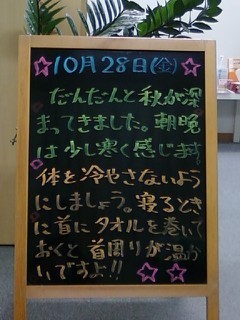 10月28日(金)
だんだんと秋が深
まってきました。朝晩
は少し寒く感じます。
体を冷やさないよう
にしましょう。寝るとき
に首にタオルを巻いて
おくと首周りが温か
いですよ!!